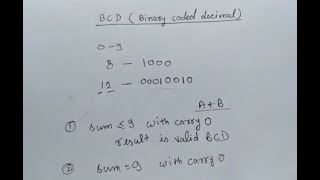 BCD (Binary coded decimal)
0-9
8 - 1000
12 - 00010010
A+B
① sum ≤ 9 with carry 0
result is valid BCD
② sum = 9 with carry 0